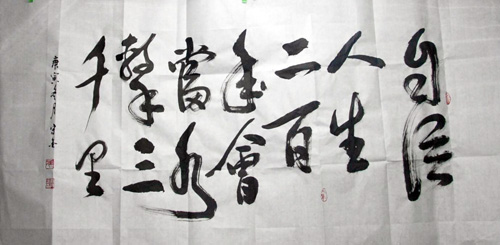 自信
人生
二百
年會
當水
擊三
千里
庚寅